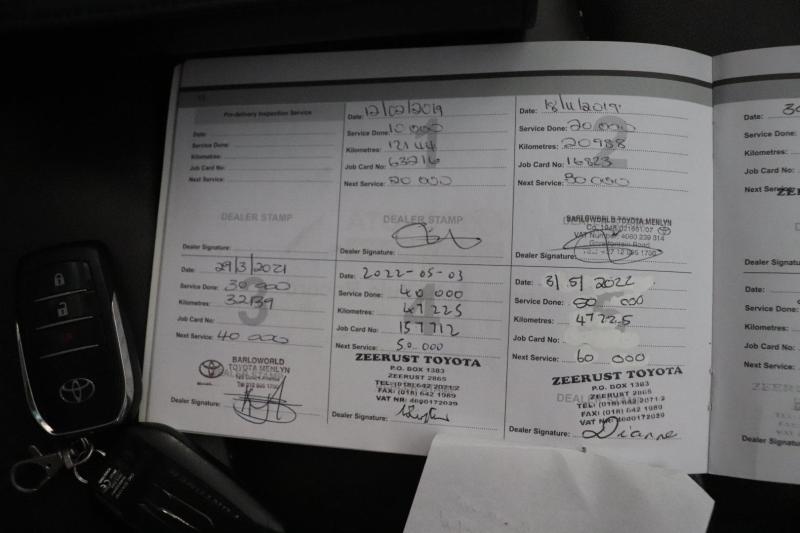 Pre-delivery Inspection Service
Date:
Service Done:
Kilometres:
Job Card No:
Next Service:
DEALER STAMP
Dealer Signature:
Date: 12/02/2019
Service Done: 10 000
Kilometres: 12144
Job Card No: 63216
Next Service: 20 000
DEALER STAMP
Dealer Signature:
Date: 18/11/2019
Service Done: 20 000
Kilometres: 20988
Job Card No: 16823
Next Service: 30 000
BARLOWORLD TOYOTA MENLYN
Dealer Signature:
Date: 29/3/2021
Service Done: 30 000
Kilometres: 32139
Job Card No:
Next Service: 40 000
BARLOWORLD
TOYOTA MENLYN
Dealer Signature:
Date: 2022-05-03
Service Done: 40 000
Kilometres: 47225
Job Card No: 157712
Next Service: 50.000
ZEERUST TOYOTA
P.O. BOX 1383
ZEERUST 2865
TEL: (018) 642 2071.2
FAX: (018) 642 1989
VAT NR: 4600172039
Dealer Signature:
Date: 3/5/2022
Service Done: 50 000
Kilometres: 47225
Job Card No:
Next Service: 60 000
ZEERUST TOYOTA
P.O. BOX 1383
ZEERUST 2865
TEL: (018) 642 2071.2
FAX: (018) 642 1989
VAT NR: 4600172039
Dealer Signature: Dianne
Date: 30
Service Done:
Kilometres:
Job Card No:
Next Service:
Dealer Signature:
Date:
Service Done:
Kilometres:
Job Card No:
Next Service:
Dealer Signature: